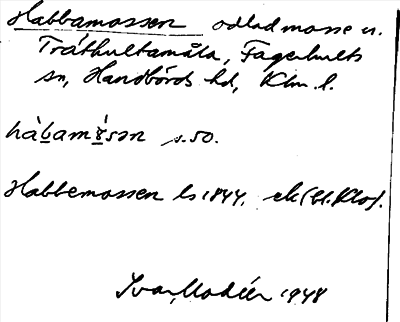 Habbamossen odlad mosse u.
Tråthultamåla, Fagerhults
sn, Handbörds hd, Klm. l.
hàbamɤ̀sən s. 50.
Habbemossen ls 1844. ek (bl. Klo).
Ivar Modéer 1948